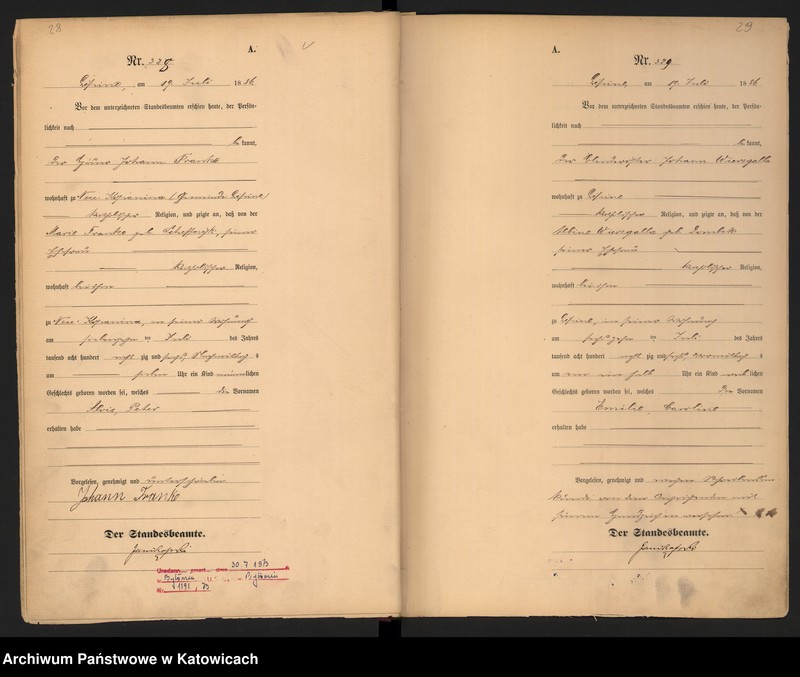 28
A.
Nr. 328
am 19 Juli 1886
Vor dem unterzeichneten Standesbeamten erschien heute, der Persön-
lichkeit nach
be kannt,
der Johann Franke
wohnhaft zu Neu Kopanina (Gemeinde
katholischer Religion, und zeigte an, daß von der
Marie Franke geb. seiner
Ehefrau
katholischer Religion,
wohnhaft bei ihm
zu Neu-Kopanina, in seiner Wohnung
am siebzehn ten Juli des Jahres
tausend acht hundert acht zig und sechs, Nachmittag s
um Uhr ein Kind männlichen
Geschlechts geboren worden sei, welches die Vornamen
Peter
erhalten habe
Vorgelesen, genehmigt und unterschrieben
Johann Franke
Der Standesbeamte.
30.7 1913
Bytomiu
Bytomiu
1191
29
A.
Nr. 329
am 19 Juli 1886
Vor dem unterzeichneten Standesbeamten erschien heute, der Persön-
lichkeit nach
be kannt,
der Johann
wohnhaft zu
katholischer Religion, und zeigte an, daß von der
geb. Dombek
seiner Ehefrau
katholischer Religion,
wohnhaft bei ihm
zu in seiner Wohnung
am sechszehn ten Juli des Jahres
tausend acht hundert acht zig und sechs Vormittag s
um ein halb Uhr ein Kind weib lichen
Geschlechts geboren worden sei, welches die Vornamen
Emilie, Caroline
erhalten habe
Vorgelesen, genehmigt und wegen Schreibun
kunde von dem Anzeigenden mit
seinem Handzeichen versehen
Der Standesbeamte.
Archiwum Państwowe w Katowicach